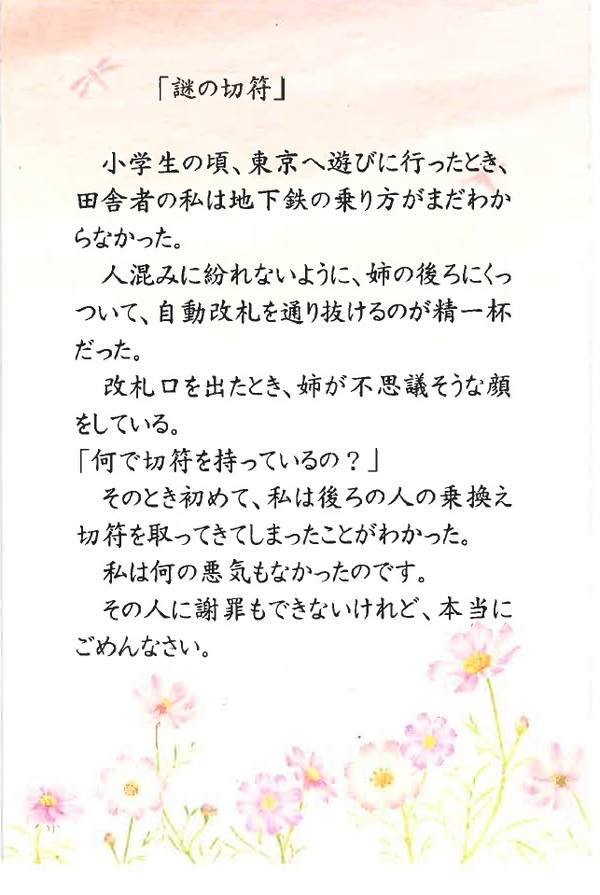 「謎の切符」
小学生の頃、東京へ遊びに行ったとき、
田舎者の私は地下鉄の乗り方がまだわか
らなかった。
人混みに紛れないように、姉の後ろにくっ
ついて、自動改札を通り抜けるのが精一杯
だった。
改札口を出たとき、姉が不思議そうな顔
をしている。
「何で切符を持っているの？」
そのとき初めて、私は後ろの人の乗換え
切符を取ってきてしまったことがわかった。
私は何の悪気もなかったのです。
その人に謝罪もできないけれど、本当に
ごめんなさい。